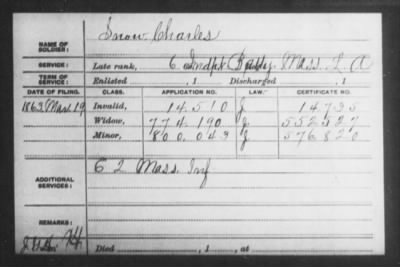 NAME OF SOLDIER: Snow, Charles
SERVICE: Late rank, 6 Indpt Batty. Mass. L. A
TERM OF SERVICE: Enlisted , 1 Discharged , 1
DATE OF FILING. CLASS. APPLICATION NO. LAW. CERTIFICATE NO.
1863 Mar. 19 Invalid, 14.510 14.735
Widow, 774.190 552527
Minor, 800.043 576820
ADDITIONAL SERVICES: 62 Mass. Inf
REMARKS:
Died , 1 , at